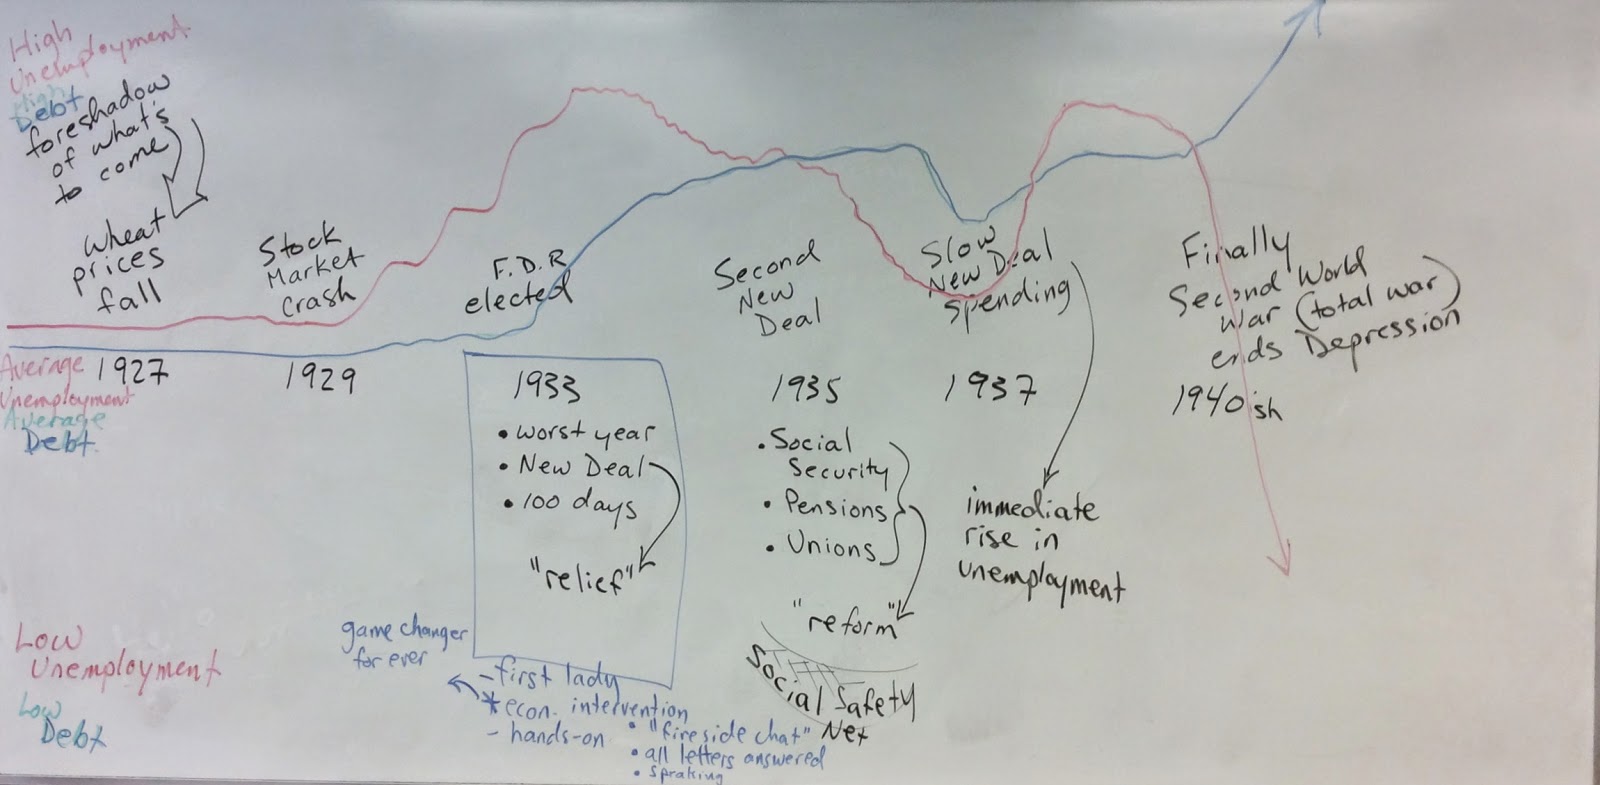 High
Unemployment
High
Debt
foreshadow
of what's
to come
Wheat
prices
fall
Stock
Market
Crash
F.D.R
elected
Second
New
Deal
Slow
New Deal
Spending
Finally
Second World
War (total war)
ends Depression
Average
Unemployment
Average
Debt.
1927
1929
1933
• worst year
• New Deal
• 100 days
"relief"
1935
• Social
Security
• Pensions
• Unions
"reform"
Social Safety
Net
1937
immediate
rise in
unemployment
1940ish
Low
Unemployment
Low
Debt
game changer
for ever
- first lady
* econ. intervention
- hands-on
• "fireside chat"
• all letters answered
• speaking